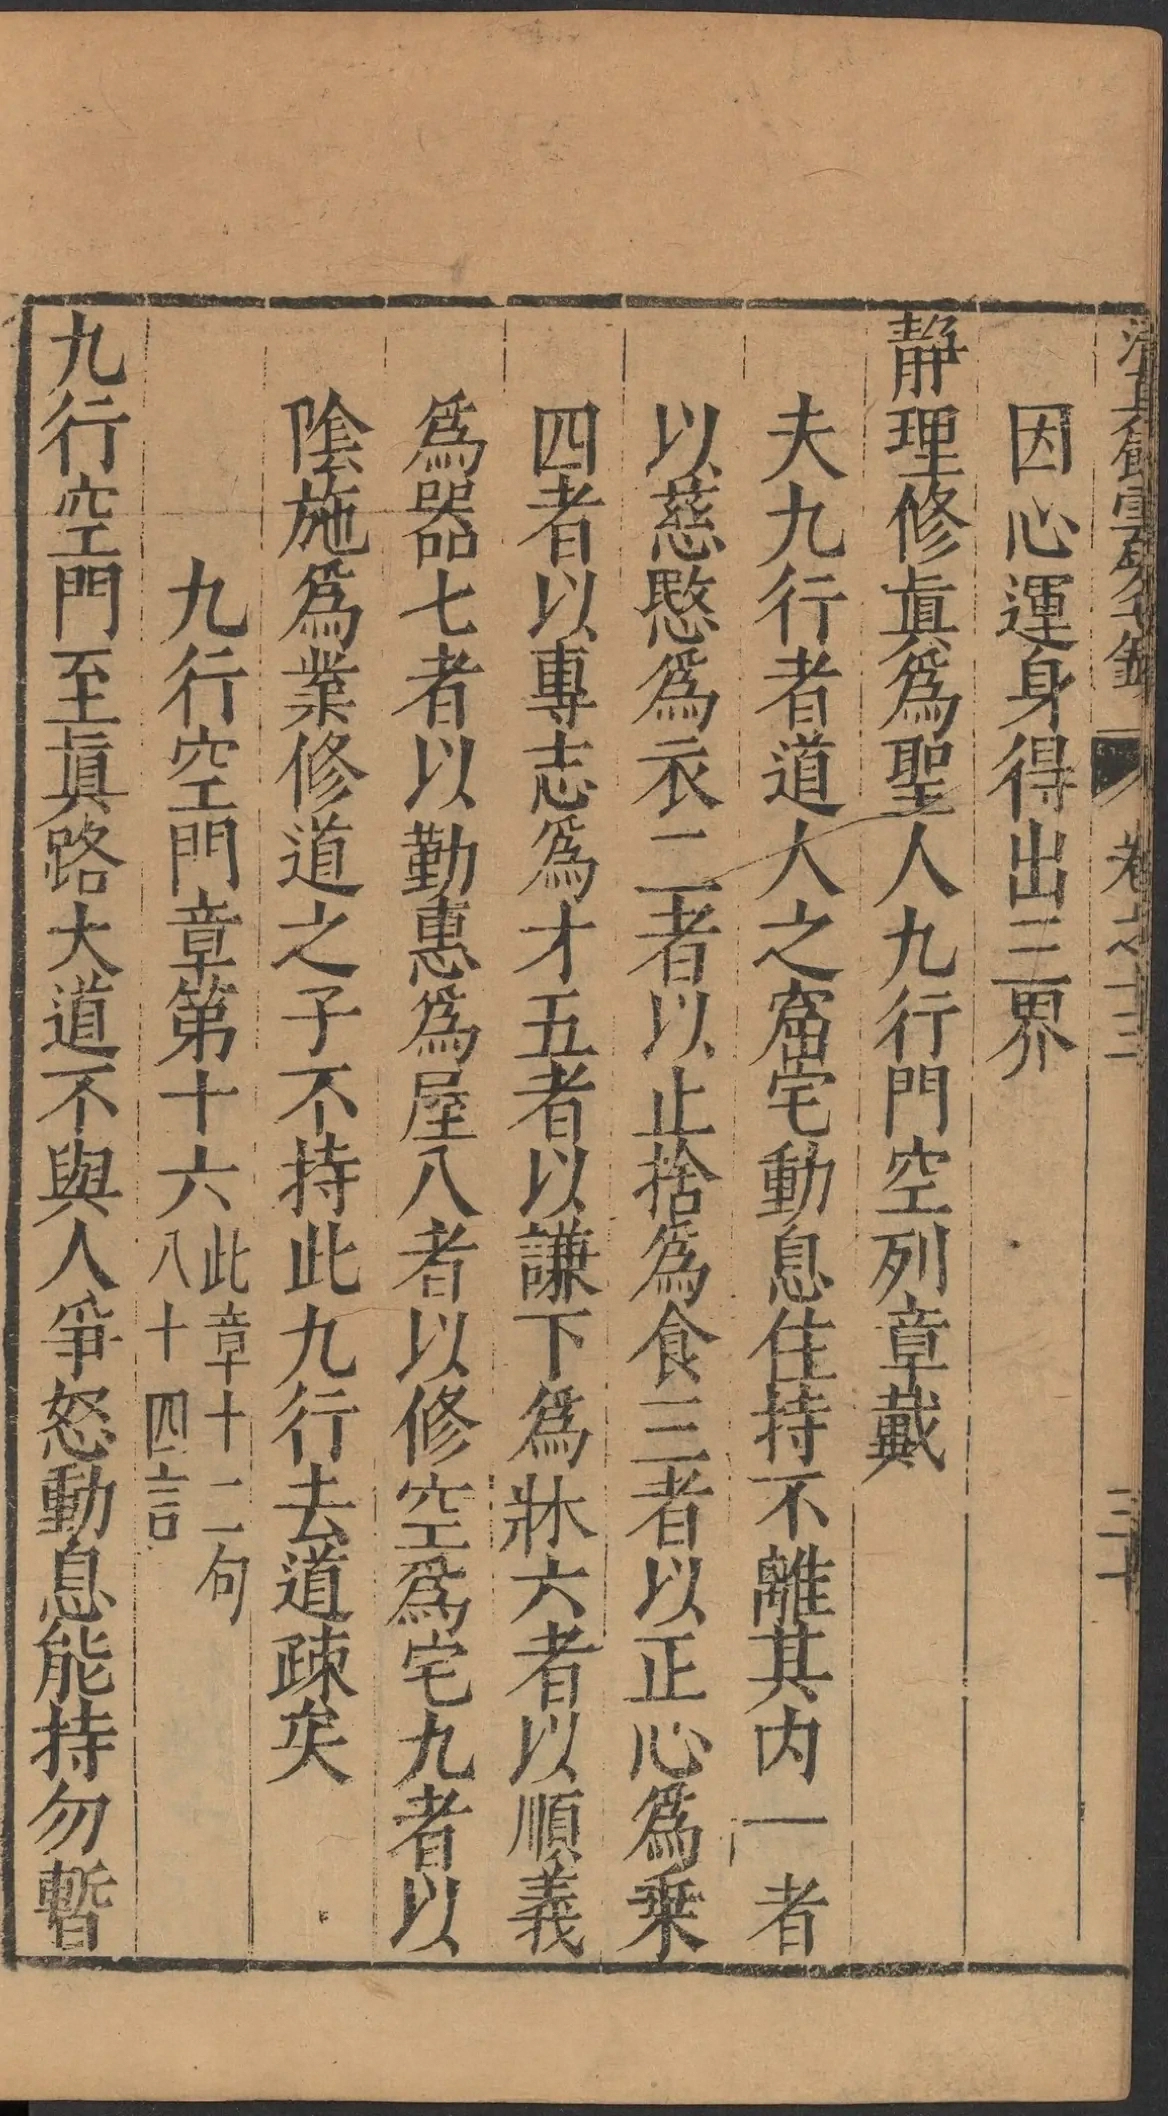 清真館雲𥮉七籤 卷之十三 三十
因心運身得出三界
靜理修真爲聖人九行門空列章戴
夫九行者道大之窟宅動息住持不離其内一者
以慈愍爲衣二者以止捨爲食三者以正心爲乗
四者以專志爲才五者以謙下爲牀六者以順義
爲器七者以勤惠爲屋八者以修空爲宅九者以
陰施爲業修道之子不持此九行去道疎矣
九行空門章第十六此章十二句
八十四言
九行空門至眞路大道不與人爭怒動息能持勿暫